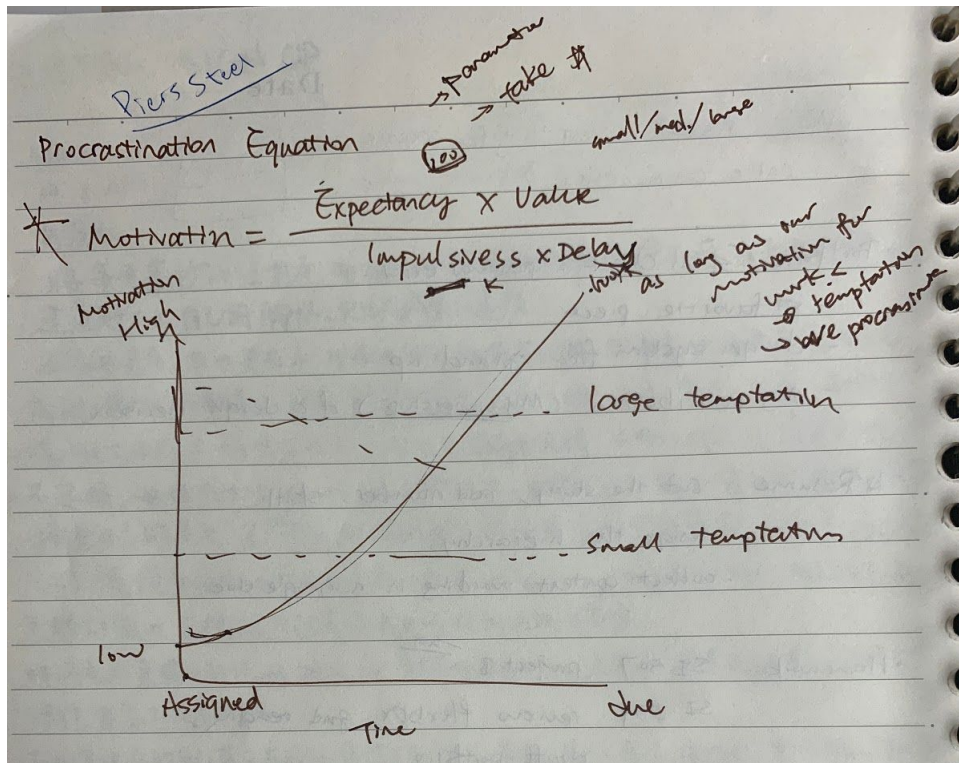 Piers Steel
→ parameter
→ take #
Procrastination Equation
100
small/med./large
Motivatin = Expectancy X Value
Impulsivess x Delay
K
work as long as our
motivation for
work <
temptation
→ we procrastinate
Motivation
High
large temptation
small temptation
low
Assigned
due
Time